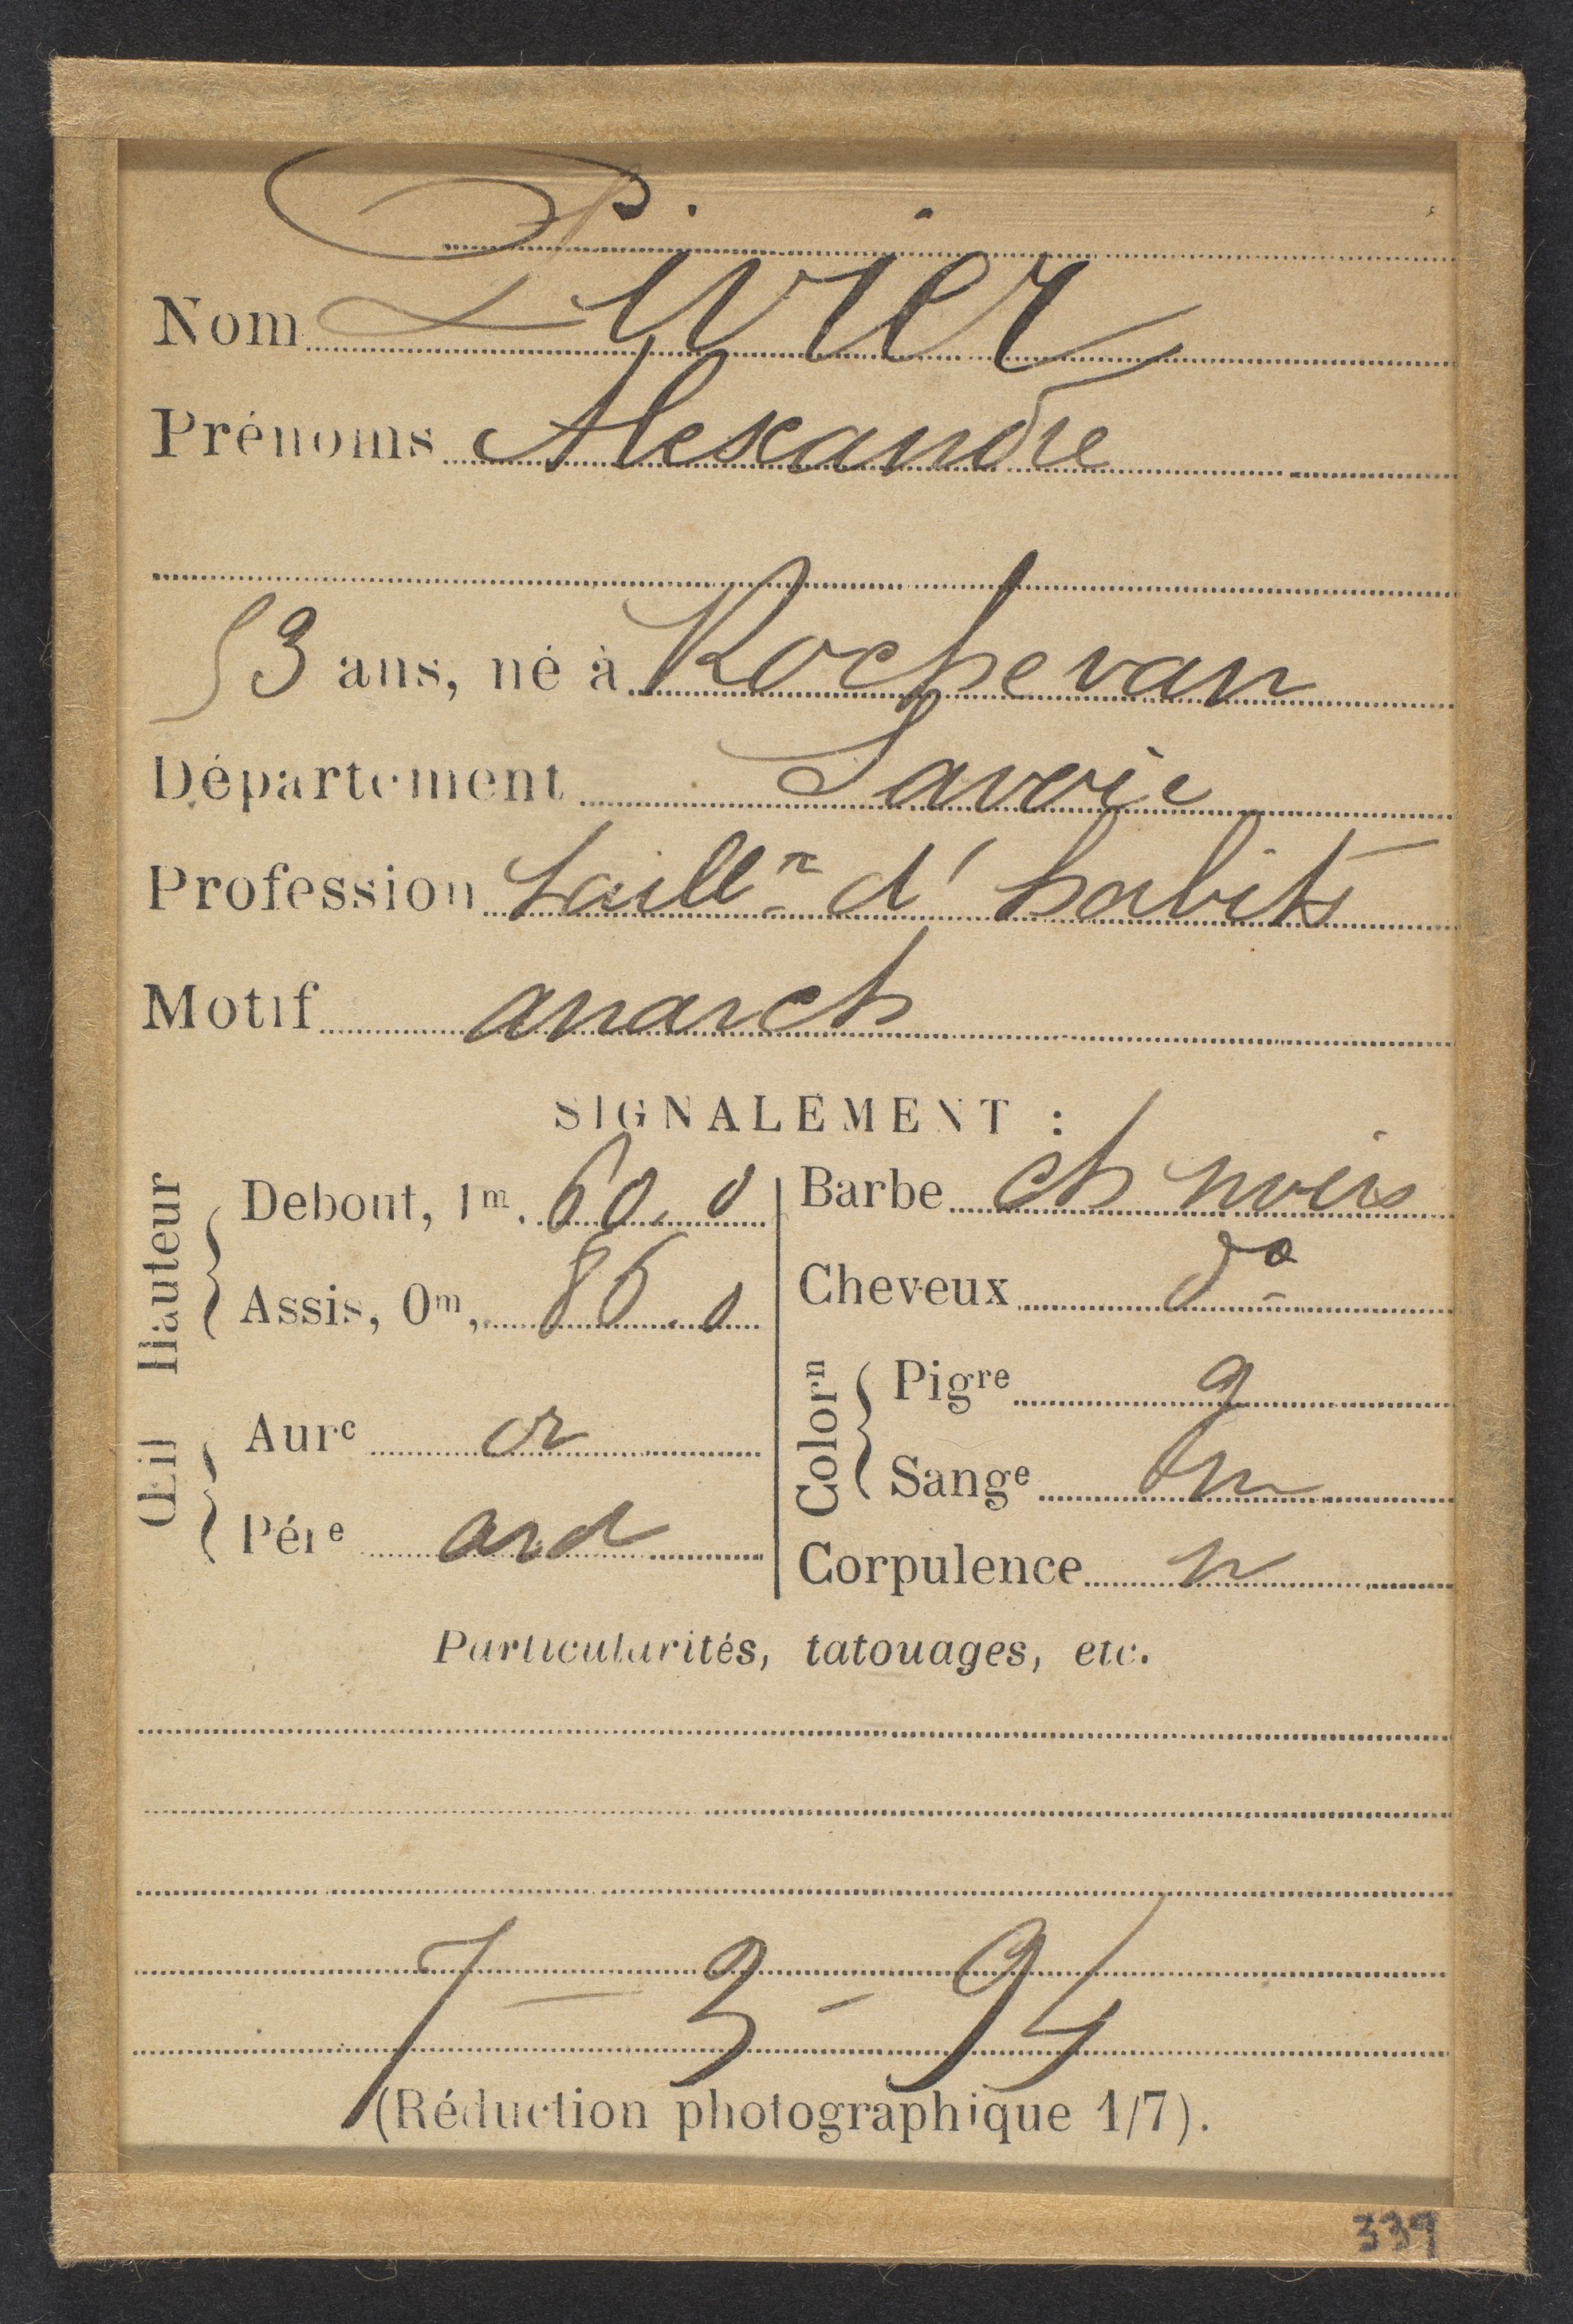 Nom Pivier
Prénoms Alexandre
53 ans, né à Rochevan
Département Savoie
Profession taillr d'habits
Motif anarch
SIGNALEMENT :
Hauteur
Debout, 1m. 60. 0
Assis, 0m, 86. 0
Œil
Aurᵉ or
Pérᵉ ard
Barbe ch noirs
Cheveux dº
Colorⁿ
Pigre g
Sangᵉ m
Corpulence n
Particularités, tatouages, etc.
7 - 3 - 94
(Réduction photographique 1/7).
339